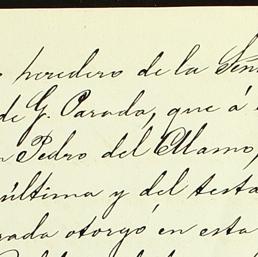 heredero de la
de G. Parada, que á
Pedro del Alamo,
última y del testa
rada otorgó en esta